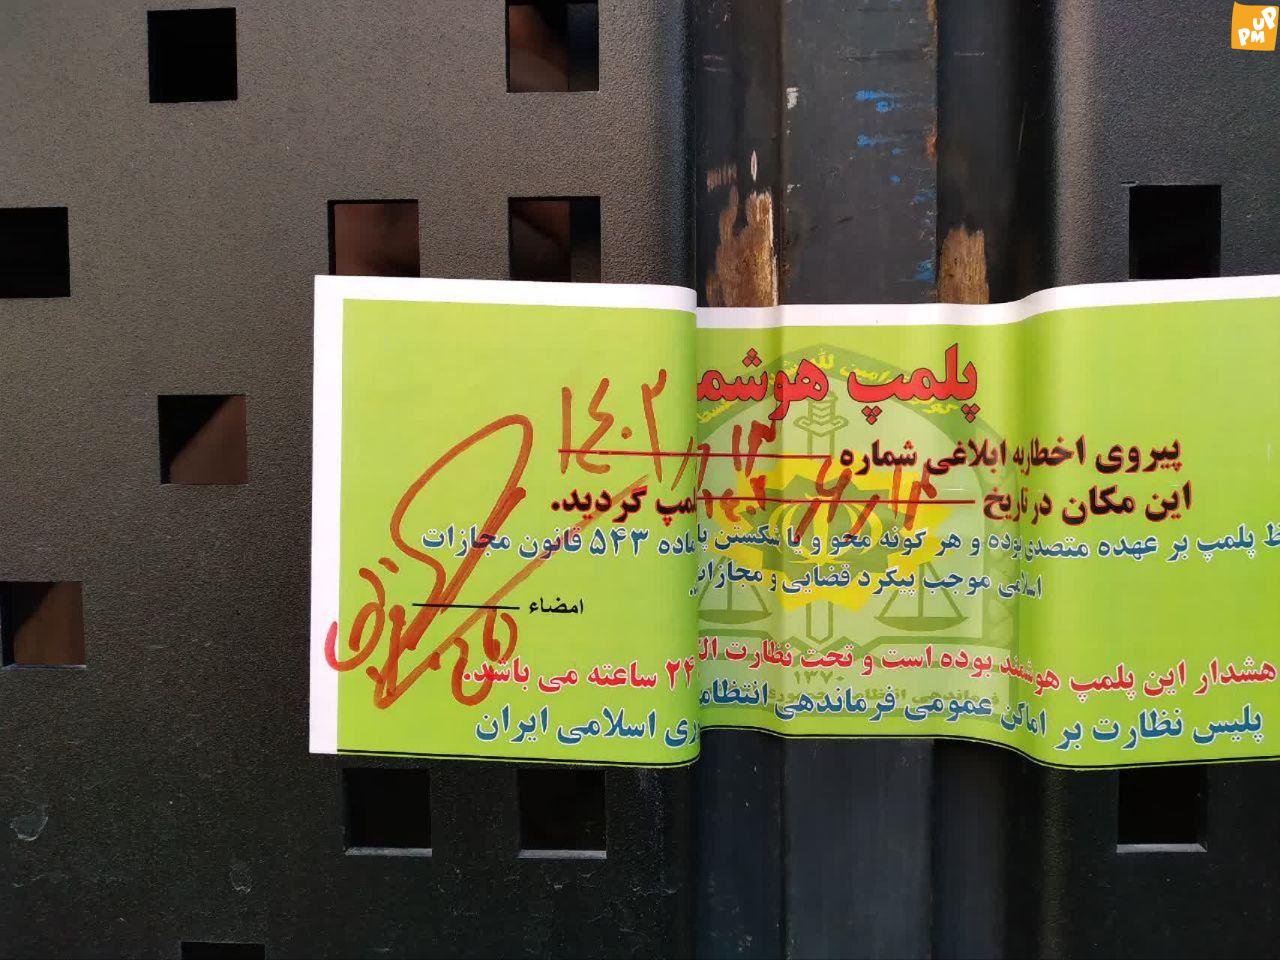 پلمپ هوشمـ
پیروی اخطاریه ابلاغی شماره ۱۴۰۲
این مکان در تاریخ لمپ گردید.
ظ پلمپ بر عهده متصدی بوده و هر گونه محو و یا شکستن پا ماده ۵۴۳ قانون مجازات
اسلامی موجب پیگرد قضایی و مجازات
امضاء
هشدار این پلمپ هوشمند بوده است و تحت نظارت الـ ۲۴ ساعته می باشد.
۱۳۷۰
پلیس نظارت بر اماکن عمومی فرماندهی انتظامـ ری اسلامی ایران
UP
PM